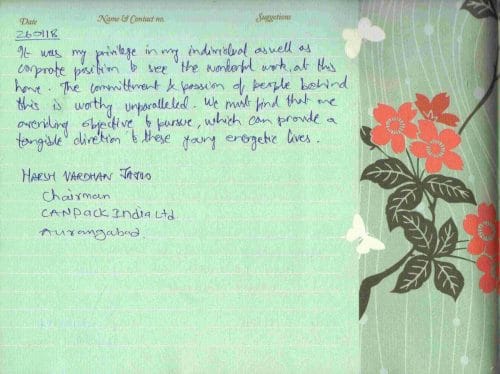 Date Name & Contact no. Suggestions
260118
It was my privilege in my individual as well as
corporate position to see the wonderful work, at this
home. The commitment & passion of people behind
this is worthy unparalleled. We must find that one
overiding objective to pursue, which can provide a
tangible direction to these young energetic lives.
HARSH VARDHAN
Chairman
CANPACK India Ltd.
Aurangabad.